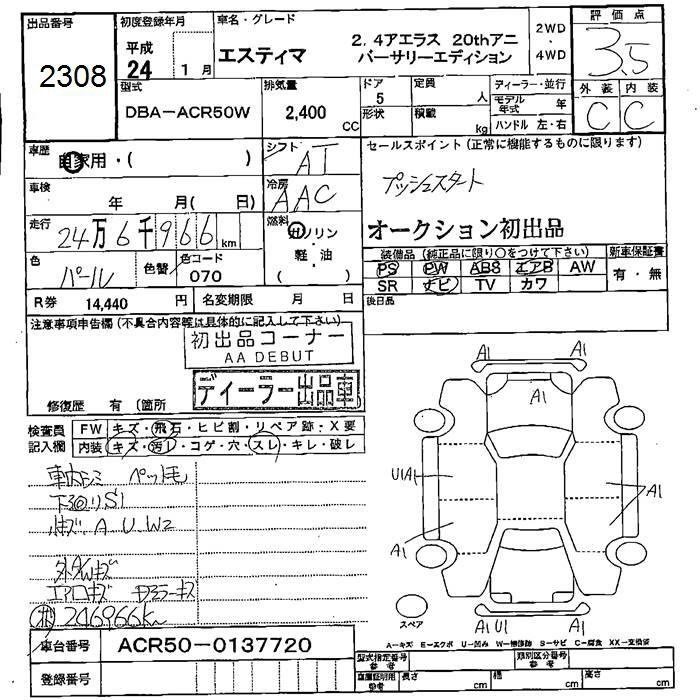 出品番号
2308
初度登録年月
平成
24 1 月
車名・グレード
エスティマ
2.4アエラス 20thアニ
バーサリーエディション
2WD
4WD
評価点
3.5
型式
DBA-ACR50W
排気量
2,400
CC
ドア
5
形状
定員
人
積載
kg
ディーラー・並行
モデル年式 年
ハンドル 左・右
外装 内装
C C
車歴
自家用・( )
シフト
AT
セールスポイント(正常に機能するものに限ります)
プッシュスタート
オークション初出品
車検
年 月( 日)
冷房
AAC
走行
24万6千966km
燃料
ガソリン
・
軽・油
色
パール
色替
色コード
070
装備品(純正品に限り○をつけて下さい)
PS PW ABS エアB AW
SR ナビ TV カワ
新車保証書
有・無
R券 14,440 円
名変期限 月 日
後日品
注意事項申告欄(不具合内容等は具体的に記入して下さい)
初出品コーナー
AA DEBUT
ディーラー出品車
修復歴 有 (箇所
検査員
記入欄
FW キズ・飛石・ヒビ割・リペア跡・X要
内装 キズ・汚レ・コゲ・穴・スレ・キレ・破レ
ペット毛
下回りS1
A U W2
外A/Wキズ
エアロキズ
246966km
A1 A1
A1
U1A1
A1
A1
A1U1 A1
スペア
A-キズ E-エクボ U-凹み W-補修跡 S-サビ C-腐食 XX-交換済
車台番号
ACR50-0137720
登録番号
型式指定番号
参考
類別区分番号
参考
車庫証明用
参考
長さ cm
幅 cm
高さ cm